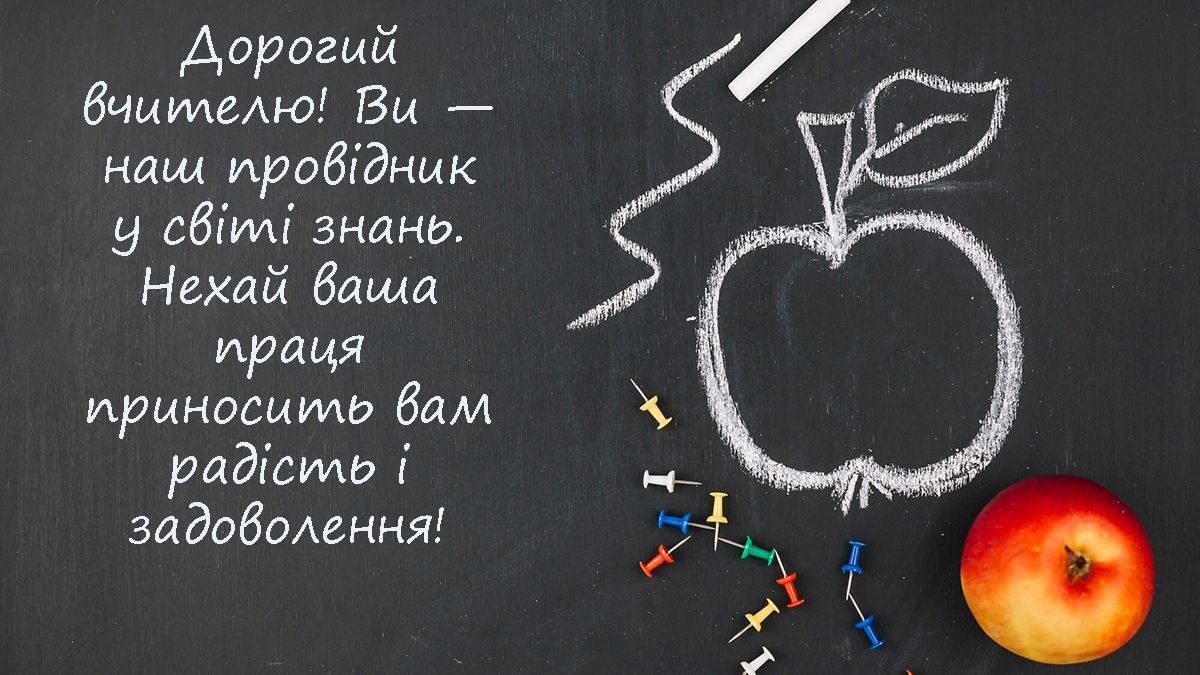 Дорогий
вчителю! Ви —
наш провідник
у світі знань.
Нехай ваша
праця
приносить вам
радість і
задоволення!